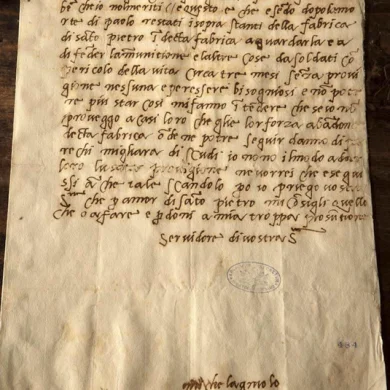 be ch'io nol meriti e questo e che esēdo dopo la mo
rte di paolo restati i sopra stanti della fabrica
di sāto pietro ī detta fabrica a guardarla e a
difender la munitione e l altre cose da soldati cō
pericolo della vita circa tre mesi senza provi
gione nessuna e per essere bisogniosi e nō pote
re piu star cosi mi fanno ītēdere che se io nō
proveggo a casi loro che gli e lor forza abādōnar
detta fabrica ō de ne potre seguir danno di pa
rechi migliara di scudi io nō o il modo a dar
loro la provigione ne vorrei che seguis
si āche tale scādolo po io priego vostra
S che p amor di sāto pietro mi cōsigli quello
che o a fare e pdoni a mia troppa prosūtione
servidore di vostra S
Michelagniolo